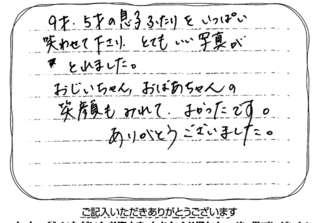 9才、5才の息子ふたりをいっぱい
笑わせて下さり、とてもいい写真が
とれました。
おじいちゃん、おばあちゃんの
笑顔もみれて、よかったです。
ありがとうございました。
ご記入いただきありがとうございます